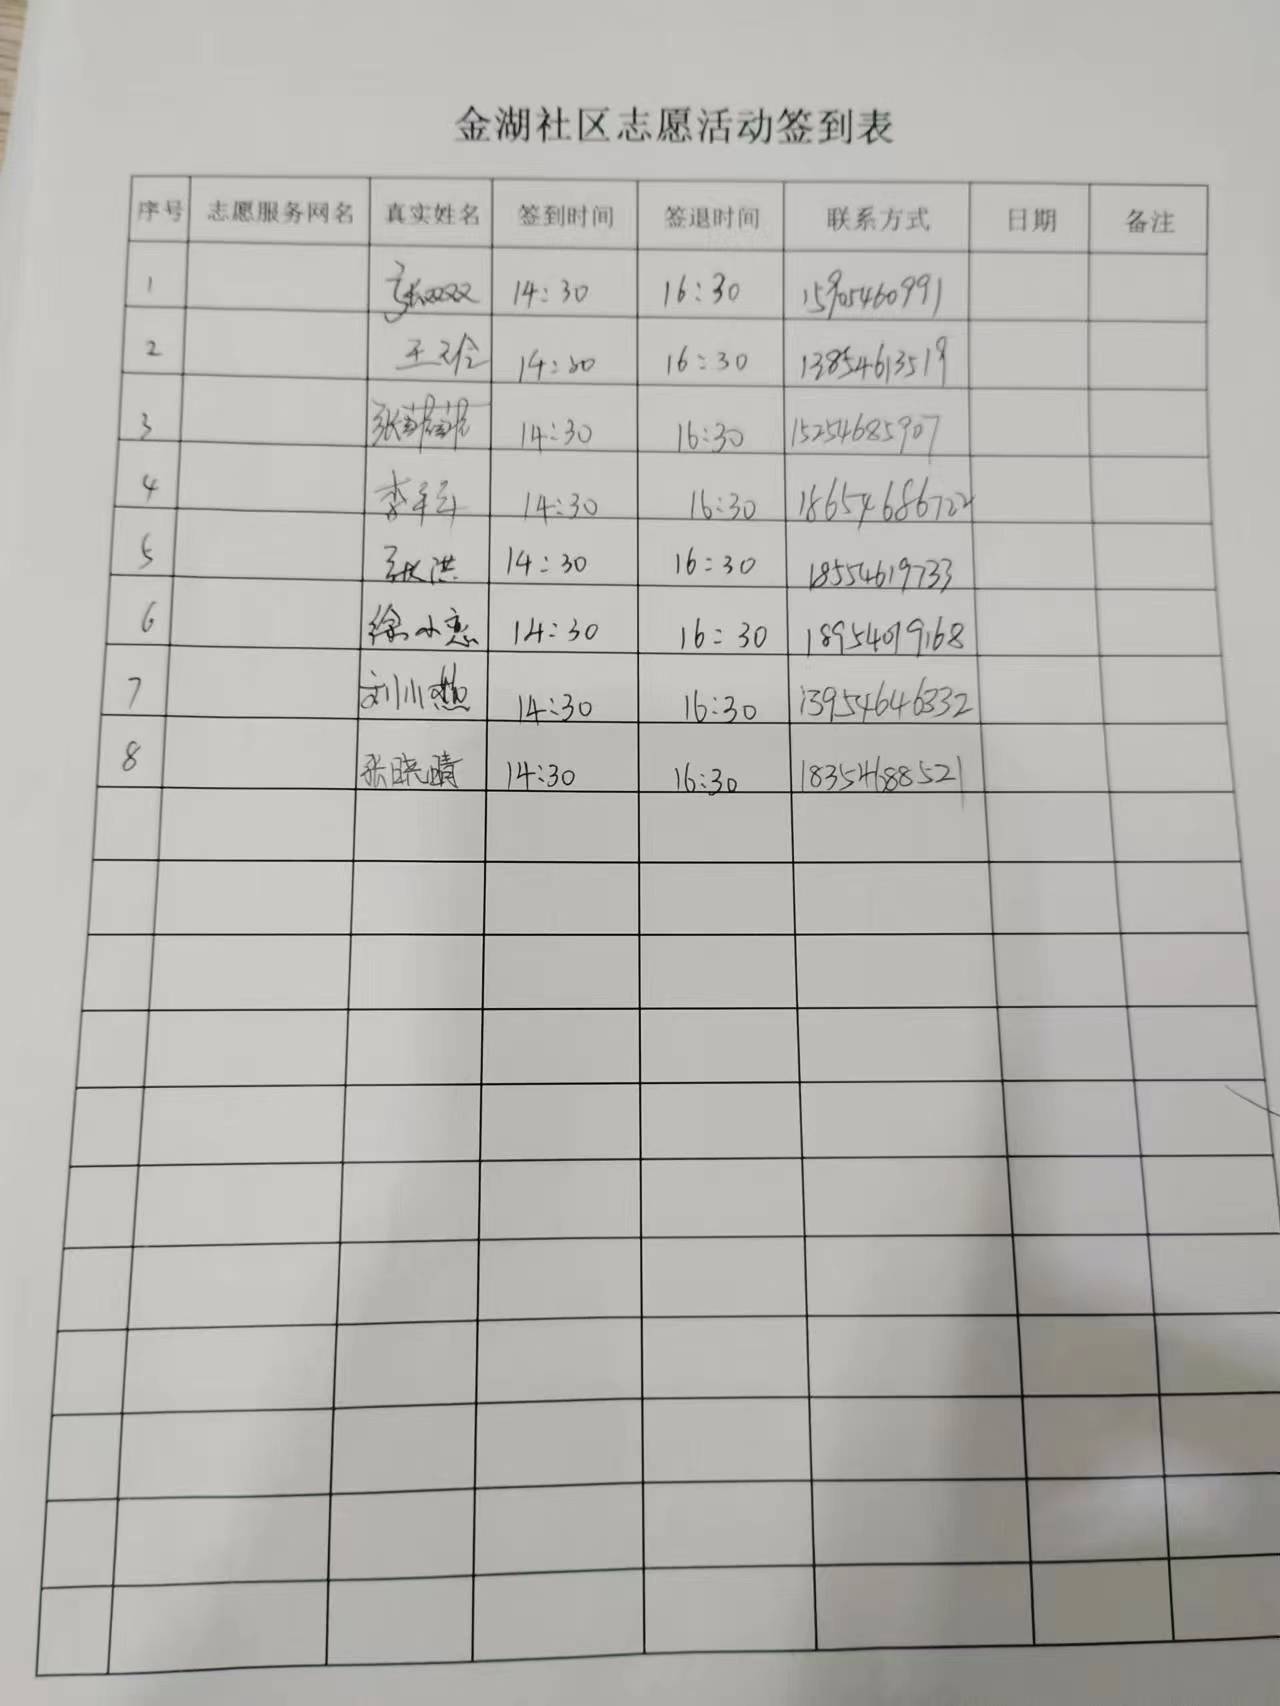 金湖社区志愿活动签到表
序号 志愿服务网名 真实姓名 签到时间 签退时间 联系方式 日期 备注
1 张双双 14:30 16:30 15905460991
2 王 14:30 16:30 13854613519
3 张 14:30 16:30 15254685907
4 李军 14:30 16:30 18654686722
5 张洪 14:30 16:30 18554619733
6 徐小恋 14:30 16:30 18954019168
7 刘小燕 14:30 16:30 13954646332
8 张晓晴 14:30 16:30 18354688521